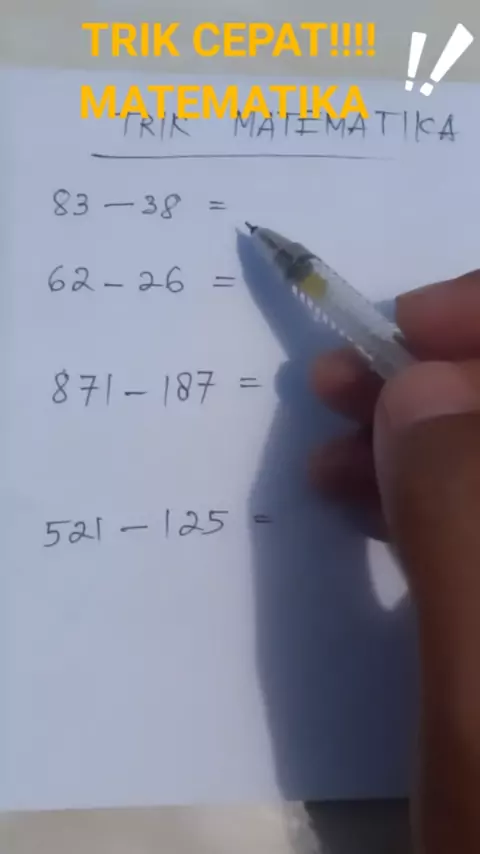 TRIK CEPAT!!!!
MATEMATIKA
TRIK MATEMATIKA
83 – 38 =
62 – 26 =
871 – 187 =
521 – 125 =